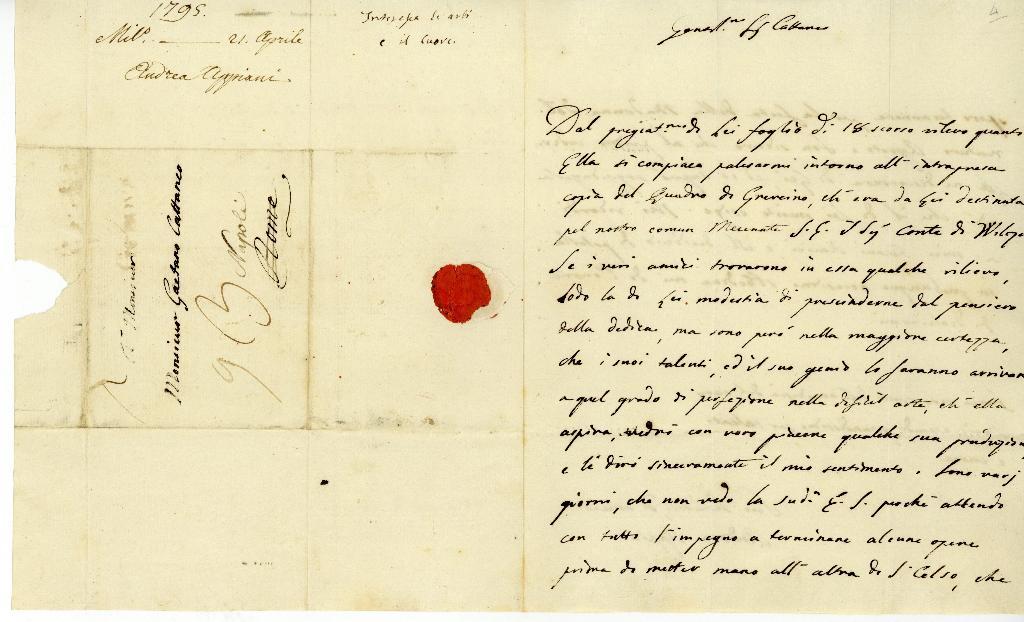 1795.
Mil.º 21. Aprile
Andrea Appiani.
Interessa le arti
e il cuore.
Monsieur
Monsieur Gaetano Cattaneo
Napoli
Rome
4
Cattaneo
Dal pregiat.mo di Lei foglio di 18 scorso rilevo quanto
Ella si compiace palesarmi intorno all' intrapresa
copia del Quadro di , ch' era da Lei destinata
pel nostro comun Mecenate S. E. il Sig Conte di Wilzek
Se i veri amici trovarono in essa qualche rilievo,
lodo la di Lei modestia di prescinderne dal pensiero
della dedica, ma sono però nella maggiore certezza,
che i suoi talenti, ed il suo genio lo faranno arrivare
a quel grado di perfezione nella difficil arte, ch' ella
aspira, vedrò con vero piacere qualche sua produzione
e le dirò sinceramente il mio sentimento. Sono varj
giorni, che non vedo la sud.a E. S. perchè attendo
con tutto l'impegno a terminare alcune opere
prima di metter mano all' altra di S. Celso, che